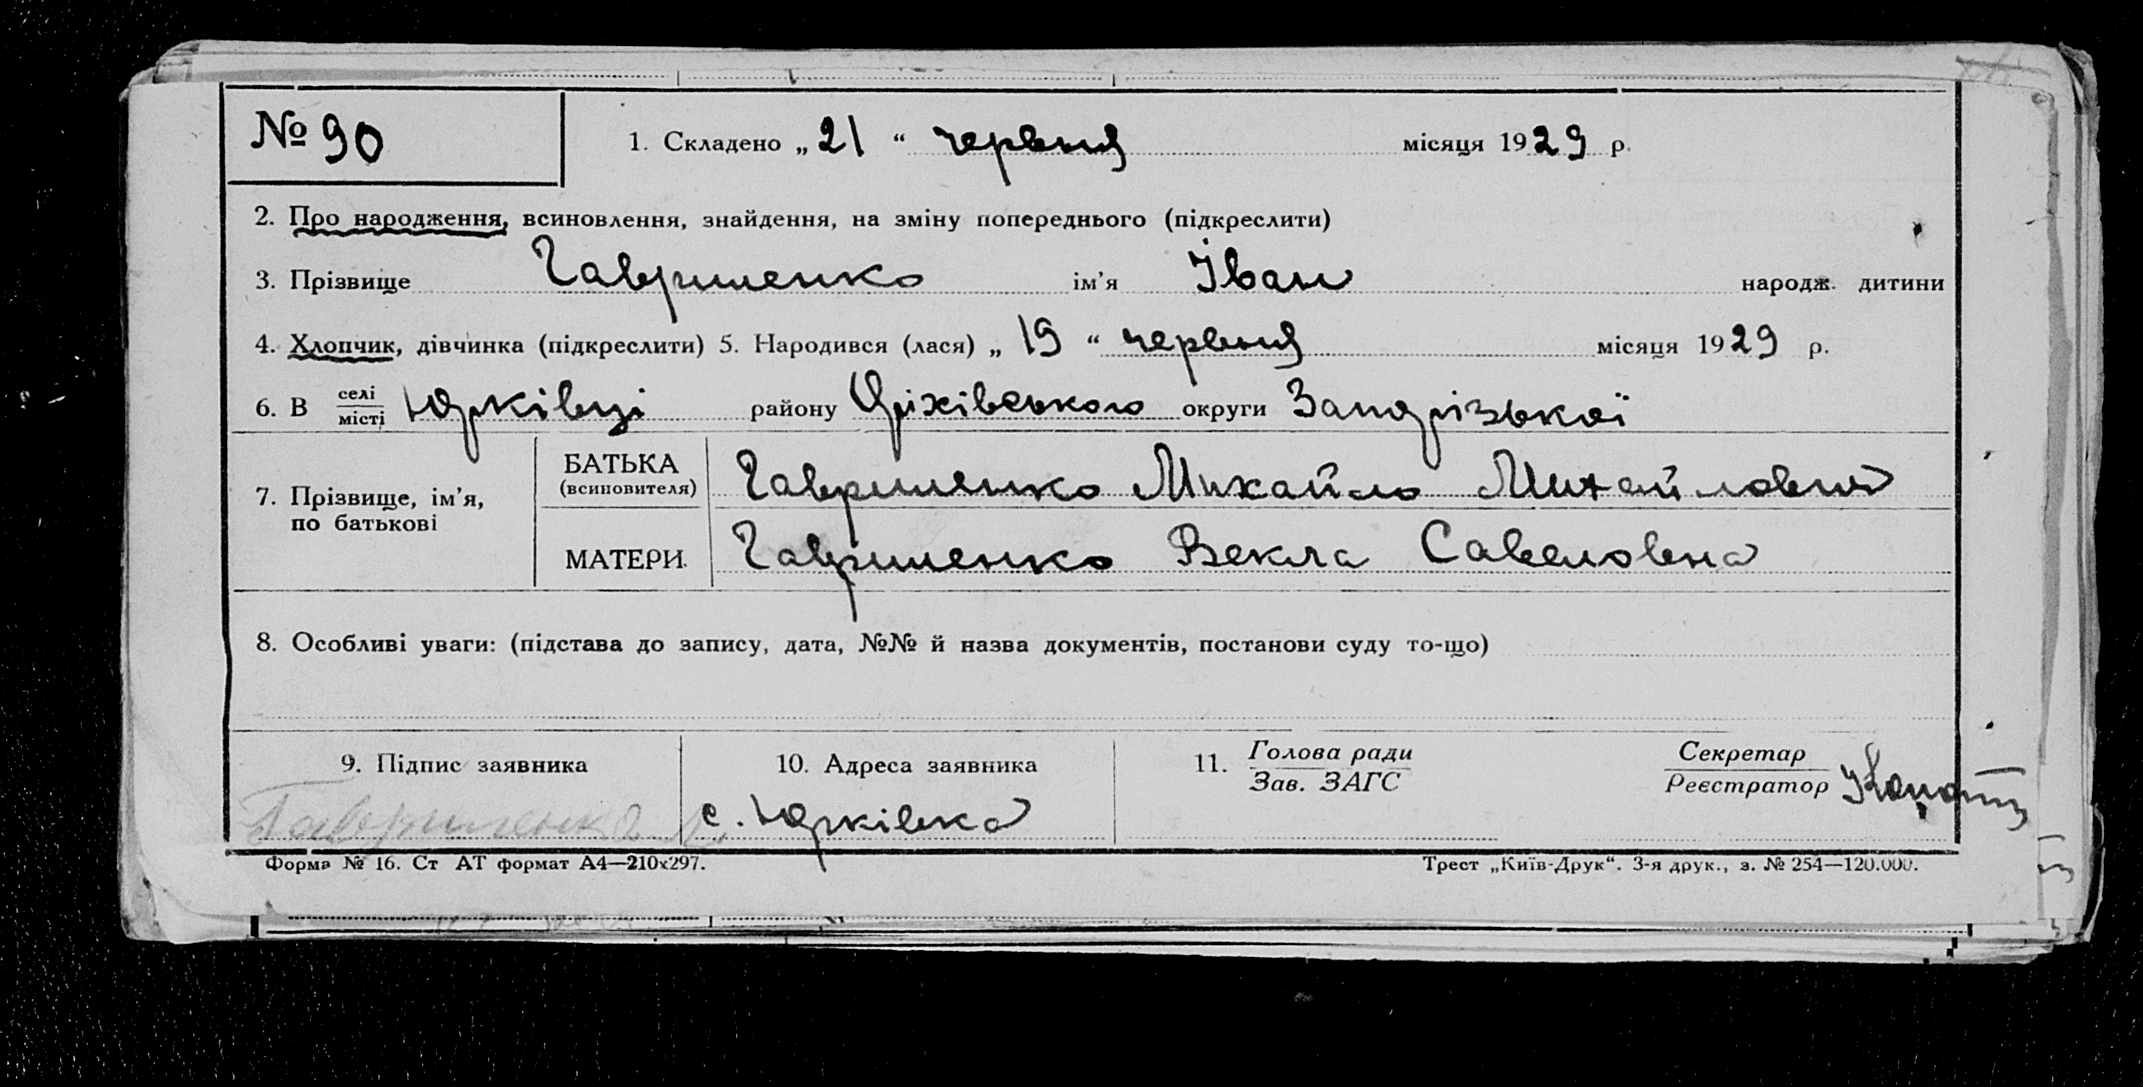 № 90
1. Складено „ 21 “ червня місяця 1929 р.
2. Про народження, всиновлення, знайдення, на зміну попереднього (підкреслити)
3. Прізвище Гавриленко ім’я Іван народж. дитини
4. Хлопчик, дівчинка (підкреслити) 5. Народився (лася) „ 19 “ червня місяця 1929 р.
6. В селі
місті Юрківці району Оріхівського округи Запорізької
7. Прізвище, ім’я,
по батькові
БАТЬКА
(всиновителя)
Гавриленко Михайло Михайлович
МАТЕРИ.
Гавриленко Векла Савеловна
8. Особливі уваги: (підстава до запису, дата, №№ й назва документів, постанови суду то-що)
9. Підпис заявника
Гавриленко
10. Адреса заявника
с. Юрківка
11. Голова ради
Зав. ЗАГС
Секретар
Реєстратор
Форма № 16. Ст АТ формат А4—210х297.
Трест „Київ-Друк“. 3-я друк., з. № 254—120.000.